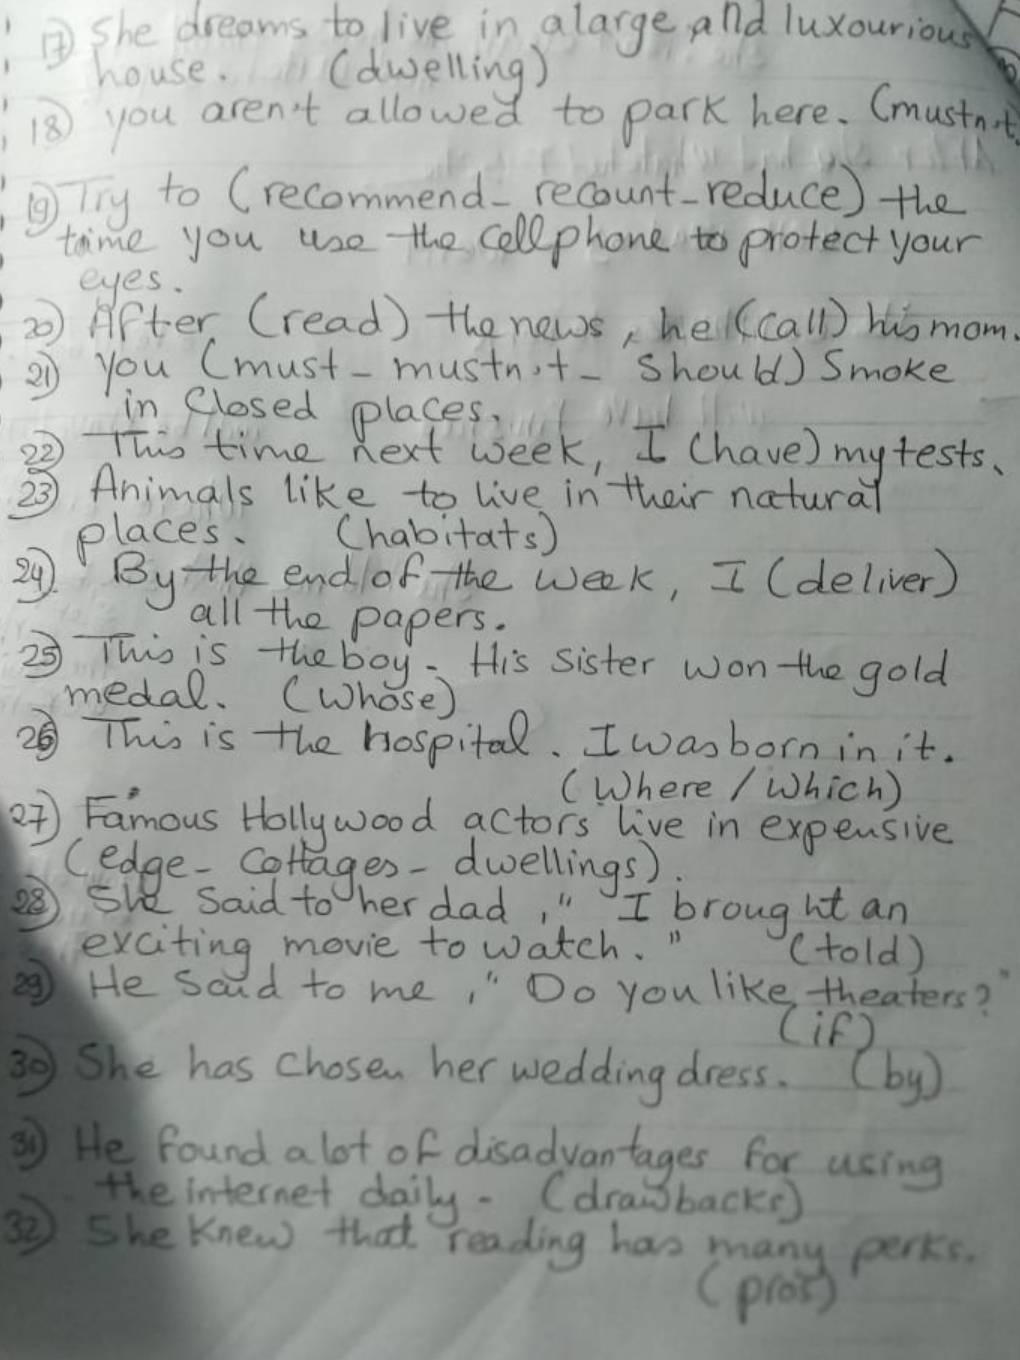 17) She dreams to live in a large and luxourious
house. (dwelling)
18) you aren't allowed to park here. (mustn't
19) Try to (recommend - recount - reduce) the
time you use the cellphone to protect your
eyes.
20) After (read) the news, he (call) his mom.
21) you (must - mustn't - should) Smoke
in Closed places.
22) This time next week, I (have) my tests.
23) Animals like to live in their natural
places. (habitats)
24) By the end of the week, I (deliver)
all the papers.
25) This is the boy. His sister won the gold
medal. (Whose)
26) This is the hospital. I was born in it.
(Where / Which)
27) Famous Hollywood actors live in expensive
(edge - Cottages - dwellings).
28) She Said to her dad, " I brought an
exciting movie to watch. " (told)
29) He Said to me, " Do you like theaters? "
(if)
30) She has Chosen her wedding dress. (by)
31) He found a lot of disadvantages for using
the internet daily. (drawbacks)
32) She Knew that reading has many perks.
(pros)